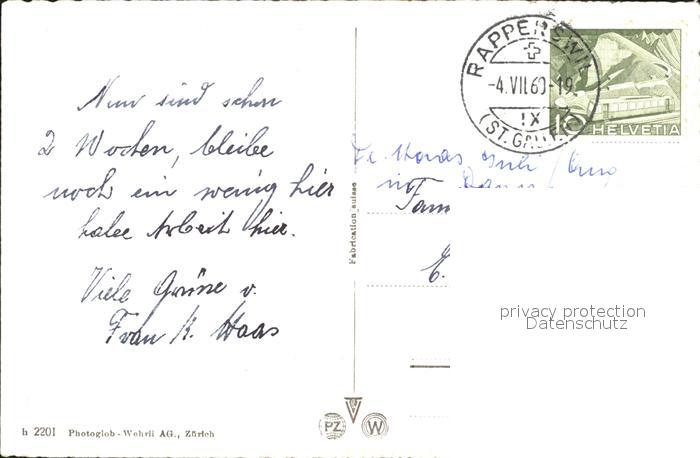 RAPPERSWIL
-4.VII.60-19
IX
(ST. GALLEN)
10
HELVETIA
Nun sind schon
2 Wochen, bleibe
noch ein wenig hier
habe Arbeit hier.
Viele Grüsse v.
Frau K. Haas
Fabrication suisse
Fam
E.
privacy protection
Datenschutz
PZ
W
h 2201 Photoglob-Wehrli AG., Zürich